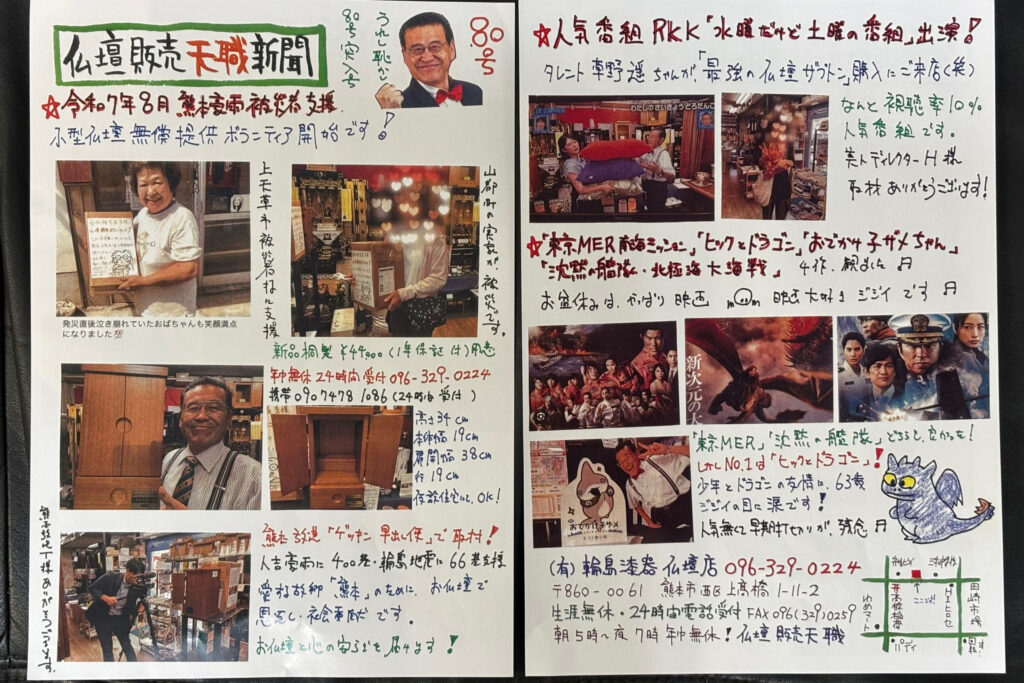 仏壇販売天職新聞
うれし恥かし
80号突入号
80号
☆令和7年8月 熊本豪雨被災者支援
小型仏壇無償提供ボランティア開始です!
上天草市被災者様に支援
山都町の実家が、被災です。
発災直後泣き崩れていたおばちゃんも笑顔満点
になりました
新品桐製 ¥44,000 (1年保証付)用意
年中無休24時間受付 096-329-0224
携帯 09074781086 (24時間受付)
高さ34cm
本体幅19cm
扉開幅38cm
行19cm
仮設住宅にも、OK!
熊本放送「ゲツキン早出し便」で取材!
人吉豪雨に400基・輪島地震に66基支援
愛する故郷「熊本」のために、お仏壇で
恩返し・社会奉仕です。
お仏壇と心の安らぎを届けます!
ありがとうございます。
☆人気番組RKK「水曜だけど土曜の番組」出演!
タレント草野遥ちゃんが、「最強の仏壇ザブトン」購入にご来店(笑)
わたしのさいきょうどろだんご
なんと視聴率10%
人気番組です。
美人ディレクターH様
取材ありがとうございます!
☆「東京MER 南海ミッション」「ヒックとドラゴン」「おでかけ子ザメちゃん」
「沈黙の艦隊・北極海大海戦」 4作、観ました♬
お盆休みは、やっぱり映画 映画大好きジジイです♬
新次元の
おでかけ子ザメ
「東京MER」「沈黙の艦隊」どちらも、良かった!
しかしNo.1は「ヒックとドラゴン」!
少年とドラゴンの友情に、63歳
ジジイの目に涙です!
人気無くて早期打ち切りが、残念♬
(有)輪島漆器仏壇店 096-329-0224
〒860-0061 熊本市西区上高橋1-11-2
生涯無休・24時間電話受付 FAX 096(329)0259
朝5時～夜7時 年中無休! 仏壇販売天職
ここ!
高橋稲荷
ゆめマート
田崎市場